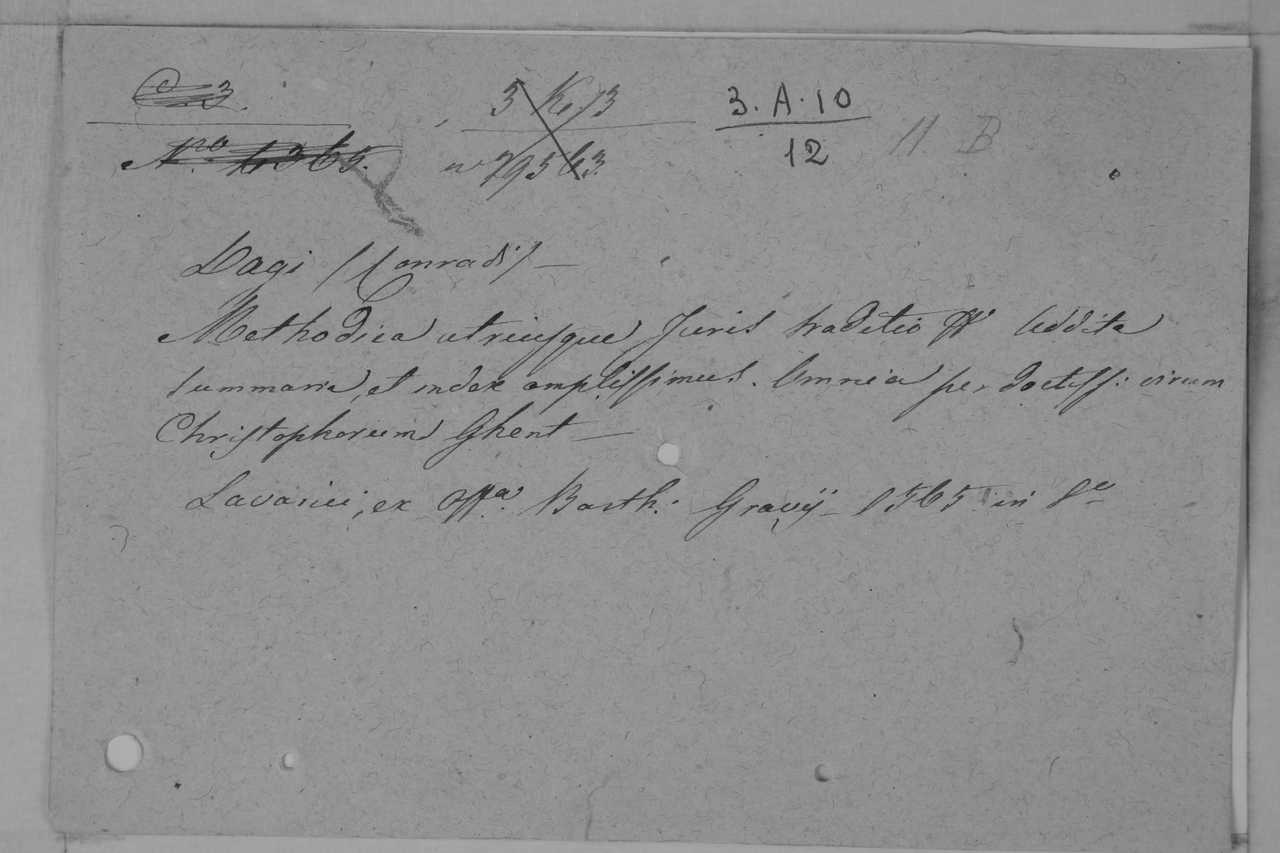 C 3. 5 Ke 13 3. A. 10
Nro 4365. no 79563. 12 11. B
Lagi (Conradi) —
Methodica utriusque Juris traditio &&. Addita
summaria, et index amplissimus. Omnia per doctiss: virum
Christophorum Ghent —
Lavanii, ex offa. Barth: Gravij — 1565. in 8o